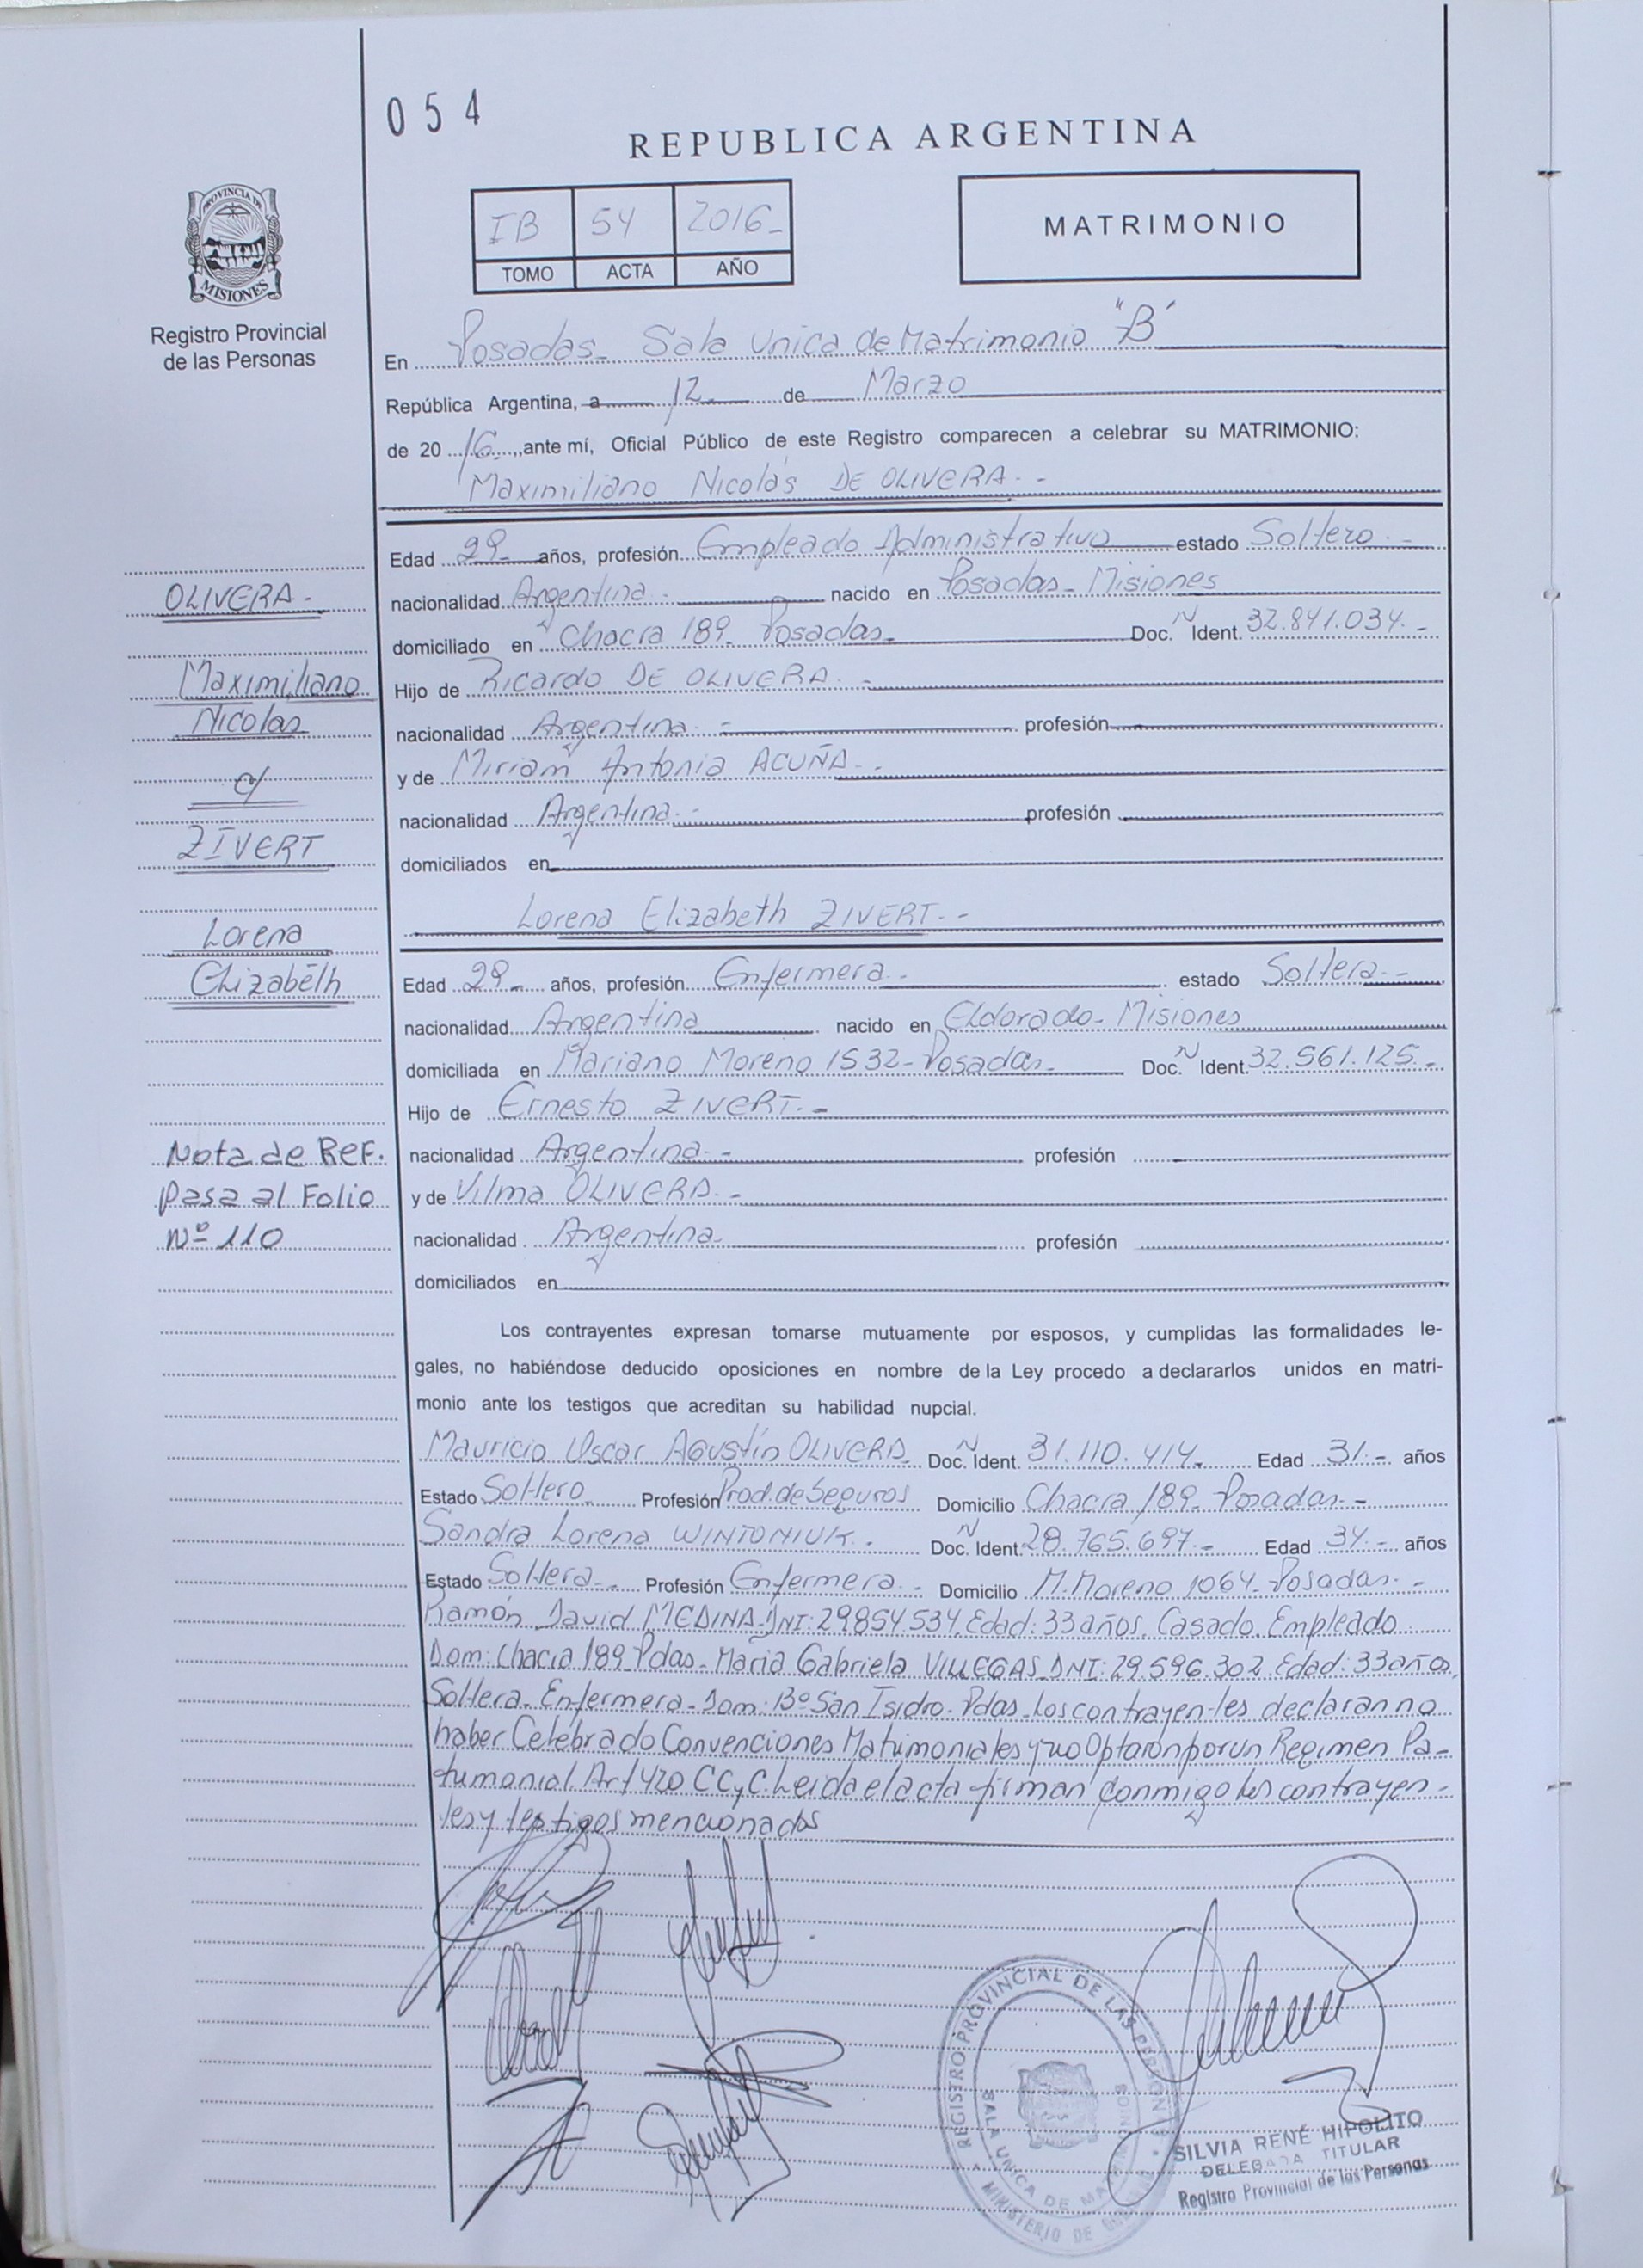 054
REPUBLICA ARGENTINA
PROVINCIA DE
MISIONES
Registro Provincial
de las Personas
IB 54 2016-
TOMO ACTA AÑO
MATRIMONIO
En Posadas- Sala Unica de Matrimonio "B"
República Argentina, a 12- de Marzo
de 20 16 ,ante mí, Oficial Público de este Registro comparecen a celebrar su MATRIMONIO:
Maximiliano Nicolás DE OLIVERA.-
Edad 29- años, profesión Empleado Administrativo estado Soltero.-
nacionalidad Argentina.- nacido en Posadas- Misiones
domiciliado en Chacra 189- Posadas- Doc. N Ident. 32.841.034.-
Hijo de Ricardo DE OLIVERA.-
nacionalidad Argentina.- profesión
y de Miriam Antonia ACUÑA.-
nacionalidad Argentina.- profesión
domiciliados en
Lorena Elizabeth ZIVERT.-
Edad 29- años, profesión Enfermera.- estado Soltera.-
nacionalidad Argentina nacido en Eldorado- Misiones
domiciliada en Mariano Moreno 1532- Posadas- Doc. N Ident. 32.561.125.-
Hijo de Ernesto ZIVERT.-
nacionalidad Argentina.- profesión
y de Vilma OLIVERA.-
nacionalidad Argentina- profesión
domiciliados en
OLIVERA-
Maximiliano
Nicolas
c/
ZIVERT
Lorena
Elizabeth
Nota de Ref.
pasa al Folio
Nº 110
Los contrayentes expresan tomarse mutuamente por esposos, y cumplidas las formalidades le-
gales, no habiéndose deducido oposiciones en nombre de la Ley procedo a declararlos unidos en matri-
monio ante los testigos que acreditan su habilidad nupcial.
Mauricio Oscar Agustín OLIVERA- Doc. N Ident. 31.110.414- Edad 31.- años
Estado Soltero Profesión Prod. de Seguros Domicilio Chacra 189- Posadas.-
Sandra Lorena WINTONIUK. Doc. N Ident. 28.765.697.- Edad 34.- años
Estado Soltera.- Profesión Enfermera.- Domicilio M. Moreno 1064- Posadas.-
Ramón David MEDINA- DNI: 29.854.534. Edad: 33 años. Casado. Empleado
Dom: Chacra 189- Pdas- Maria Gabriela VILLEGAS- DNI: 29.596.302 Edad: 33 años,
Soltera- Enfermera- Dom: Bº San Isidro- Pdas- Los contrayentes declaran no
haber Celebrado Convenciones Matrimoniales y no Optaron por un Regimen Pa-
trimonial Art 420 CCyC. Leida el acta firman conmigo los contrayen-
tes y testigos mencionados
REGISTRO PROVINCIAL DE LAS PERSONAS
SALA UNICA DE MATRIMONIOS
MINISTERIO DE
SILVIA RENÉ HIPOLITO
DELEGADA TITULAR
Registro Provincial de las Personas